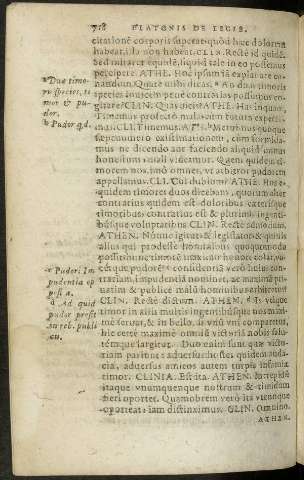 718 PLATONIS DE LEGIB.
citatione corporis superat: quod hæc dolorem
habeat, illa non habeat. CLIN. Recte id quidé.
Sed miraret equidē, siquid tale in eo possemus
percipere. ATHE. Hoc ipsum iā explanare co-
nandum. Quare mihi dicas: An duo timoris
species
girare? CLIN. Quas dicis? ATHE. Has inquam,
Timemus profecto mala, cùm futura expecta-
mus. CLI. Timemus. AT. Metuimus quoque
sæpenumero existimationem, formida-
mus ne dicendo aut faciendo aliquid minus
honestum mali videamur. Quem quidem ti-
morem nos, imò omnes, ut arbitror pudorem
appellamus. CLI. Quidni? ATHE. Hos e-
quidem timores duos dicebam, quorum alter
contrarius quidem est doloribus cæterisque
timoribus: contrarius est & plurimis ingenti-
busque voluptatibus. CLIN. Recte admodum.
ATHEN. Nonne igitur & legislator & quivis
alius qui prodesse
positus hunc timorē maximo honore colat, vo-
cetque pudorē: confidentiā verò huic con-
trariam, impudentiā nominet, ac maximū pri-
vatim & publicè malū hominibus existimet?
CLIN. Recte dictum. ATHEN. Is utique
timor in aliis multis ingentibúsque nos maxi-
mè servat, & in bello, si unū uni comparetur,
hic certè maximè omniū victoriā nobis salu-
témque largitur. Duo enim sunt quæ victo-
riam pariunt: adversus hostes quidem auda-
cia, adversus amicos autem turpis infamiæ
timor. CLINIA. Est ita. ATHEN. Intrepidū
itaque unumquenque nostrum & timidum
fieri oportet. Quamobrem verò ita utrunque
oporteat: iam distinximus. CLIN. Omnino.
ATHEN.
a Duæ timo-
ris species, ti-
mor & pu-
dor.
b Pudor q.d.
c Pudori. Im
pudentia op
posita.
d Ad quid
pudor prosit
in reb. publi
cis.